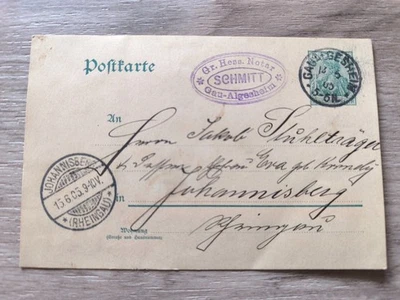 Postkarte
Gr. Hess. Notar
SCHMITT
Gau-Algesheim
GAU-ALGESHEIM
5-6N.
An
Herrn Jakob Stuhlträger
Eva geb.
JOHANNISBERG
15.6.05.9-10V.
(RHEINGAU)
in
Johannisberg
Rheingau
Wohnung
(Straße und Hausnummer)